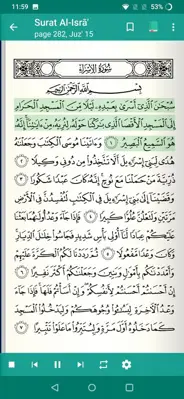 11:59
Surat Al-Isrā'
page 282, Juz' 15
سُورَةُ الإِسْرَاءِ
بِسْمِ ٱللَّهِ ٱلرَّحْمَٰنِ ٱلرَّحِيمِ
سُبْحَٰنَ ٱلَّذِىٓ أَسْرَىٰ بِعَبْدِهِۦ لَيْلًا مِّنَ ٱلْمَسْجِدِ ٱلْحَرَامِ
إِلَى ٱلْمَسْجِدِ ٱلْأَقْصَا ٱلَّذِى بَٰرَكْنَا حَوْلَهُۥ لِنُرِيَهُۥ مِنْ ءَايَٰتِنَآ إِنَّهُۥ
هُوَ ٱلسَّمِيعُ ٱلْبَصِيرُ ١ وَءَاتَيْنَا مُوسَى ٱلْكِتَٰبَ وَجَعَلْنَٰهُ
هُدًى لِّبَنِىٓ إِسْرَٰٓءِيلَ أَلَّا تَتَّخِذُوا۟ مِن دُونِى وَكِيلًا ٢
ذُرِّيَّةَ مَنْ حَمَلْنَا مَعَ نُوحٍ إِنَّهُۥ كَانَ عَبْدًا شَكُورًا ٣
وَقَضَيْنَآ إِلَىٰ بَنِىٓ إِسْرَٰٓءِيلَ فِى ٱلْكِتَٰبِ لَتُفْسِدُنَّ فِى ٱلْأَرْضِ
مَرَّتَيْنِ وَلَتَعْلُنَّ عُلُوًّا كَبِيرًا ٤ فَإِذَا جَآءَ وَعْدُ أُولَىٰهُمَا بَعَثْنَا
عَلَيْكُمْ عِبَادًا لَّنَآ أُو۟لِى بَأْسٍ شَدِيدٍ فَجَاسُوا۟ خِلَٰلَ ٱلدِّيَارِ
وَكَانَ وَعْدًا مَّفْعُولًا ٥ ثُمَّ رَدَدْنَا لَكُمُ ٱلْكَرَّةَ عَلَيْهِمْ
وَأَمْدَدْنَٰكُم بِأَمْوَٰلٍ وَبَنِينَ وَجَعَلْنَٰكُمْ أَكْثَرَ نَفِيرًا ٦
إِنْ أَحْسَنتُمْ أَحْسَنتُمْ لِأَنفُسِكُمْ وَإِنْ أَسَأْتُمْ فَلَهَا فَإِذَا جَآءَ
وَعْدُ ٱلْءَاخِرَةِ لِيَسُۥٓـُٔوا۟ وُجُوهَكُمْ وَلِيَدْخُلُوا۟ ٱلْمَسْجِدَ
كَمَا دَخَلُوهُ أَوَّلَ مَرَّةٍ وَلِيُتَبِّرُوا۟ مَا عَلَوْا۟ تَتْبِيرًا ٧